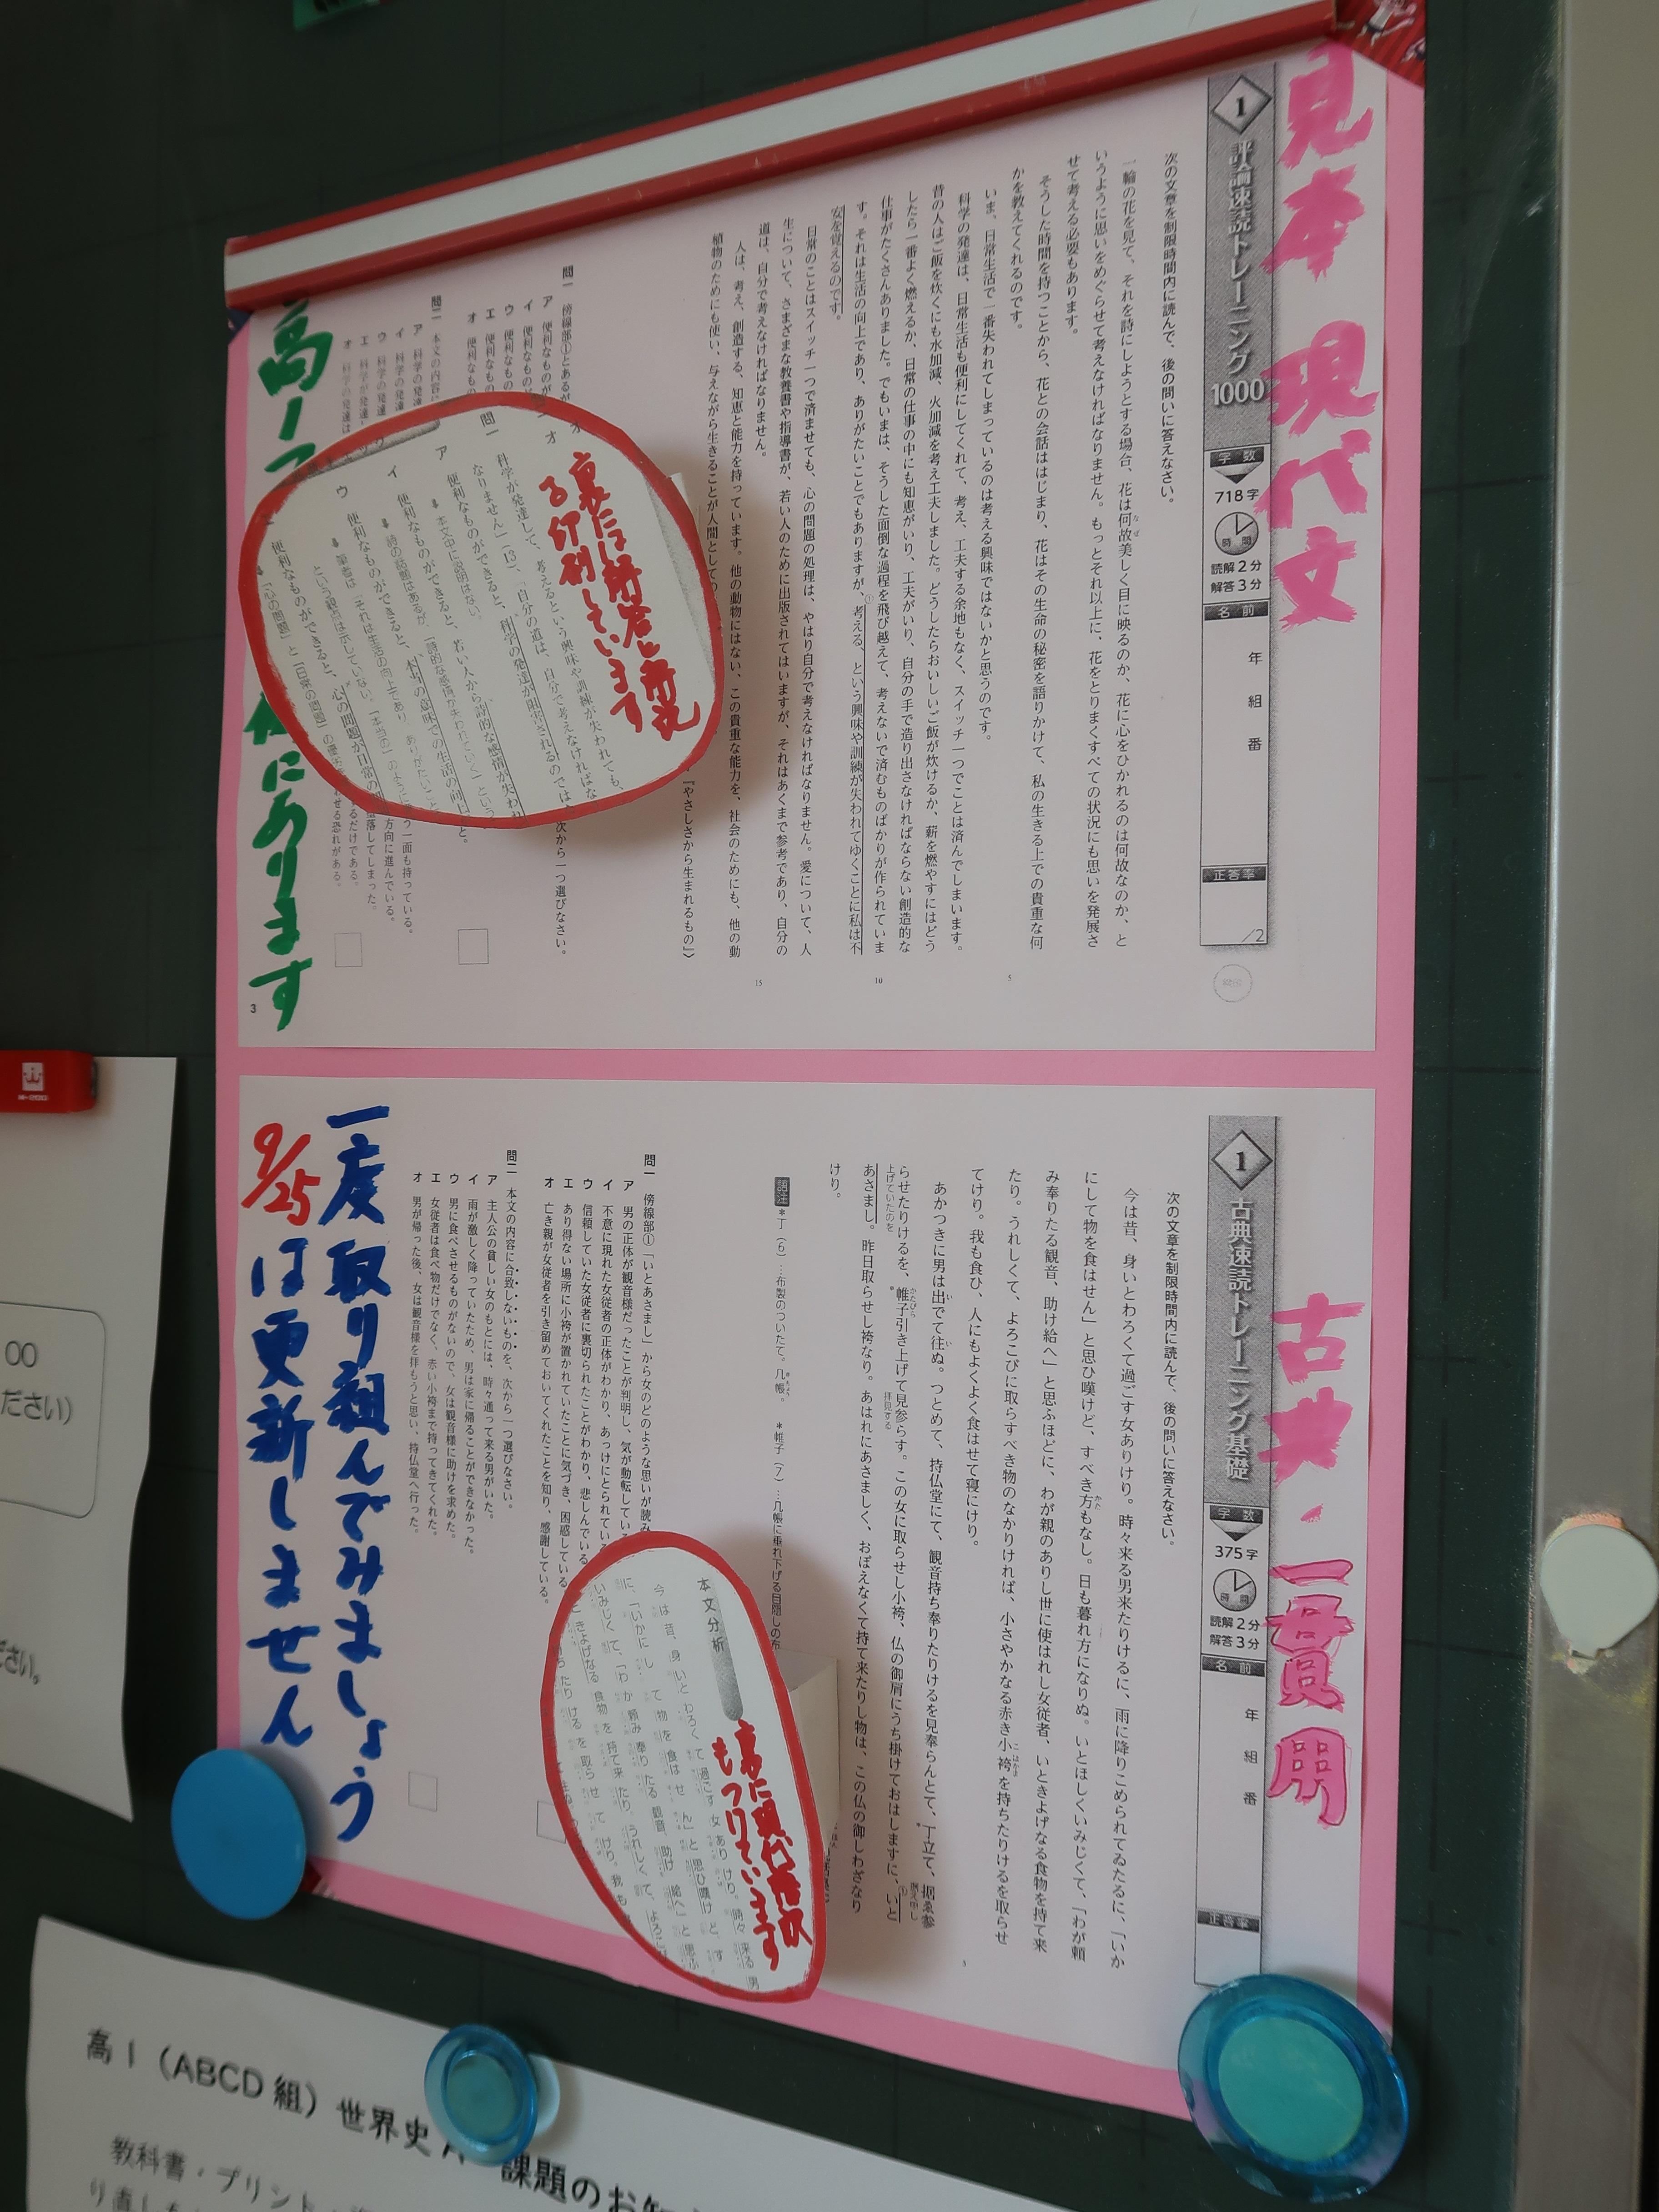 見本 現代文
1 評論速読トレーニング1000
字数
718字
時間
読解2分
解答3分
名前
年 組 番
正答率
/2
次の文章を制限時間内に読んで、後の問いに答えなさい。
一輪の花を見て、それを詩にしようとする場合、花は何故美しく目に映るのか、花に心をひかれるのは何故なのか、と
いうように思いをめぐらせて考えなければなりません。もっとそれ以上に、花をとりまくすべての状況にも思いを発展さ
せて考える必要もあります。
そうした時間を持つことから、花との会話ははじまり、花はその生命の秘密を語りかけて、私の生きる上での貴重な何
かを教えてくれるのです。
いま、日常生活で一番失われてしまっているのは考える興味ではないかと思うのです。
科学の発達は、日常生活も便利にしてくれて、考え、工夫する余地もなく、スイッチ一つでことは済んでしまいます。
昔の人はご飯を炊くにも水加減、火加減を考え工夫しました。どうしたらおいしいご飯が炊けるか、薪を燃やすにはどう
したら一番よく燃えるか、日常の仕事の中にも知恵がいり、工夫がいり、自分の手で造り出さなければならない創造的な
仕事がたくさんありました。でもいまは、そうした面倒な過程を飛び越えて、考えないで済むものばかりが作られていま
す。それは生活の向上であり、ありがたいことでもありますが、①考える、という興味や訓練が失われてゆくことに私は不
安を覚えるのです。
日常のことはスイッチ一つで済ませても、心の問題の処理は、やはり自分で考えなければなりません。愛について、人
生について、さまざまな教養書や指導書が、若い人のために出版されてはいますが、それはあくまで参考であり、自分の
道は、自分で考えなければなりません。
人は、考え、創造する、知恵と能力を持っています。他の動物にはない、この貴重な能力を、社会のためにも、他の動
植物のためにも使い、与えながら生きることが人間としての
『やさしさから生まれるもの』〉
問一 傍線部①とあるが
次から一つ選びなさい。
ア 便利なものが
イ 便利なもの
ウ 便利なもの
エ 便利なもの
オ 便利なもの
問二 本文の内容に
ア 科学の発達
イ 科学の発達
ウ 科学の発達
エ 科学が発達
オ 科学の発達は
裏には解答と解説
も印刷しています
科学が発達して、考えるという興味や訓練が失われても、
なりません」(13)、「自分の道は、自分で考えなければな
問一
ア 便利なものができると、科学の発達が阻害されるのでは
本文中に説明はない。
イ 便利なものができると、若い人から詩的な感情が失われ
ウ 便利なものができると、本当の意味での生活の向上
便利なものができると、心の問題が日常の
3
にあります
古典・一貫用
1 古典速読トレーニング基礎
字数
375字
時間
読解2分
解答3分
名前
年 組 番
正答率
次の文章を制限時間内に読んで、後の問いに答えなさい。
今は昔、身いとわろくて過ごす女ありけり。時々来る男来たりけるに、雨に降りこめられてゐたるに、「いか
にして物を食はせん」と思ひ嘆けど、すべき方もなし。日も暮れ方になりぬ。いとほしくいみじくて、「わが頼
み奉りたる観音、助け給へ」と思ふほどに、わが親のありし世に使はれし女従者、いときよげなる食物を持て来
たり。うれしくて、よろこびに取らすべき物のなかりければ、小さやかなる赤き小袴を持ちたりけるを取らせ
てけり。我も食ひ、人にもよくよく食はせて寝にけり。
あかつきに男は出でて往ぬ。つとめて、持仏堂にて、観音持ち奉りたりけるを見奉らんとて、丁立て、据ゑ参
らせたりけるを、帷子引き上げて見参らす。この女に取らせし小袴、仏の御肩にうち掛けておはしますに、①いと
あさまし。昨日取らせし袴なり。あはれにあさましく、おぼえなくて持て来たりし物は、この仏の御しわざなり
けり。
語注 *丁(6)…布製のついたて。几帳。 *帷子(7)…几帳に垂れ下げる目隠しの布
問一 傍線部①「いとあさまし」から女のどのような思いが読み
ア 男の正体が観音様だったことが判明し、気が動転してい
イ 不意に現れた女従者の正体がわかり、あっけにとられてい
ウ 信頼していた女従者に裏切られたことがわかり、悲しんでいる
エ あり得ない場所に小袴が置かれていたことに気づき、困惑している
オ 亡き親が女従者を引き留めておいてくれたことを知り、感謝している。
問二 本文の内容に合致しないものを、次から一つ選びなさい。
ア 主人公の貧しい女のもとには、時々通って来る男がいた。
イ 雨が激しく降っていたため、男は家に帰ることができなかった。
ウ 男に食べさせるものがないので、女は観音様に助けを求めた。
エ 女従者は食べ物だけでなく、赤い小袴まで持ってきてくれた。
オ 男が帰った後、女は観音様を拝もうと思い、持仏堂へ行った。
裏に現代語訳
もついています
本文分析
今は昔、身いとわろくて過ごす女ありけり。時々来る男
に、「いかにして物を食はせん」と思ひ嘆けど、す
いみじくて、「わが頼み奉りたる観音、助け給へ」と思ふ
きよげなる食物を持て来たり。うれしくて、よろこ
一度取り組んでみましょう
9/25は更新しません
00
ださい)
ださい。
高1(ABCD組)世界史A 課題のお知
教科書・プリント